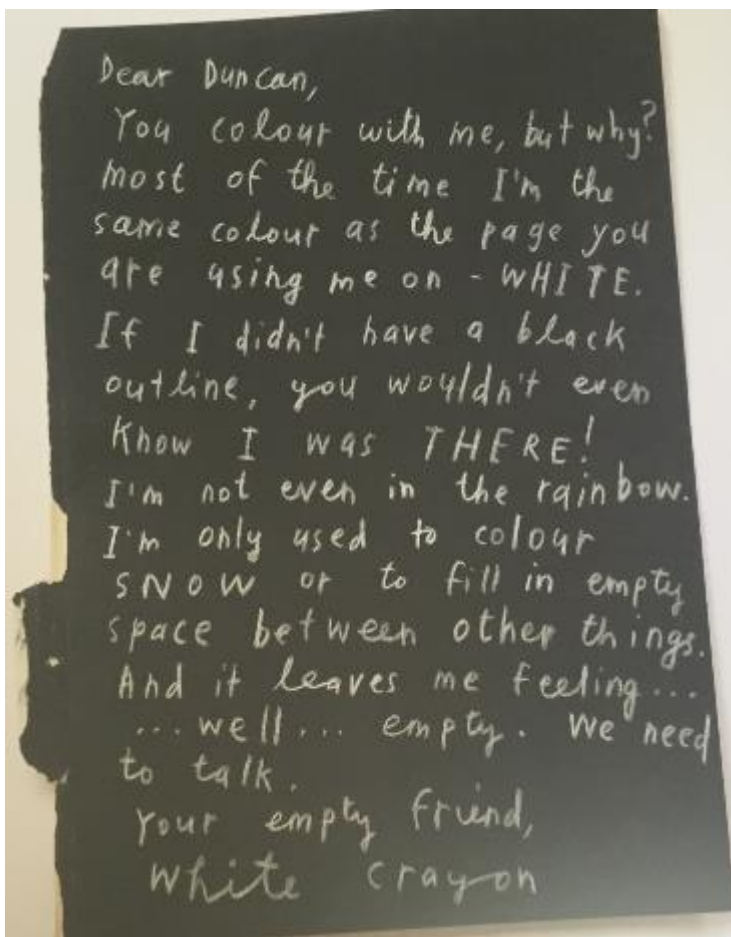 Dear Duncan,
You colour with me, but why?
most of the time I'm the
same colour as the page you
are using me on - WHITE.
If I didn't have a black
outline, you wouldn't even
know I was THERE!
I'm not even in the rainbow.
I'm only used to colour
SNOW or to fill in empty
space between other things.
And it leaves me feeling...
...well... empty. We need
to talk.
Your empty friend,
White crayon